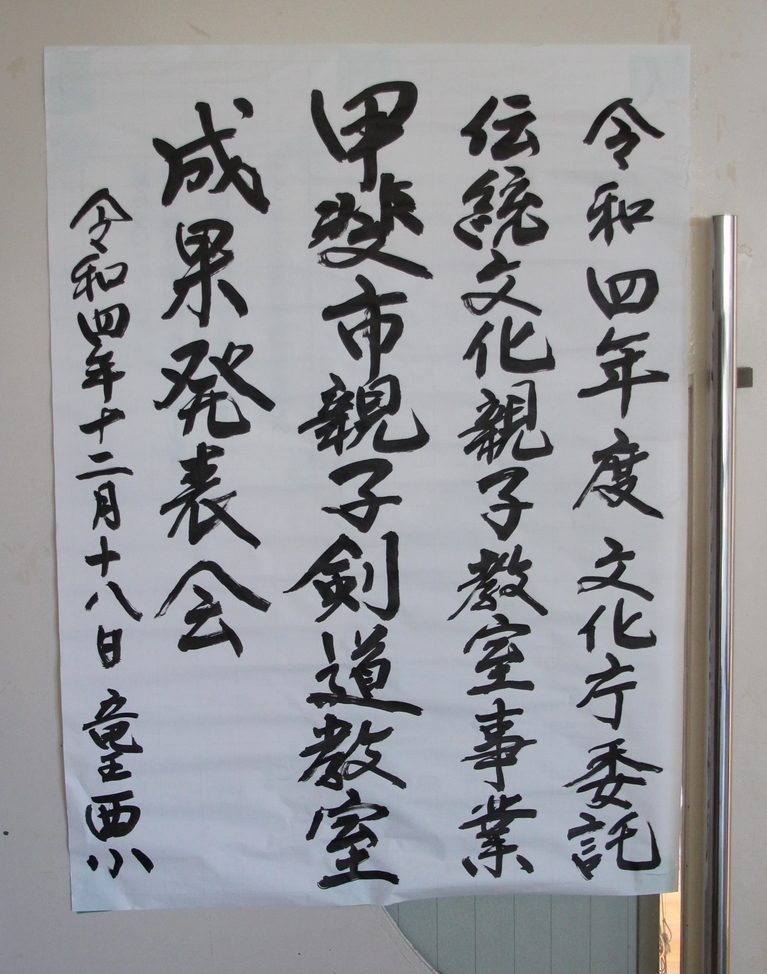 令和四年度文化庁委託
伝統文化親子教室事業
甲斐市親子剣道教室
成果発表会
令和四年十二月十八日 竜王西小